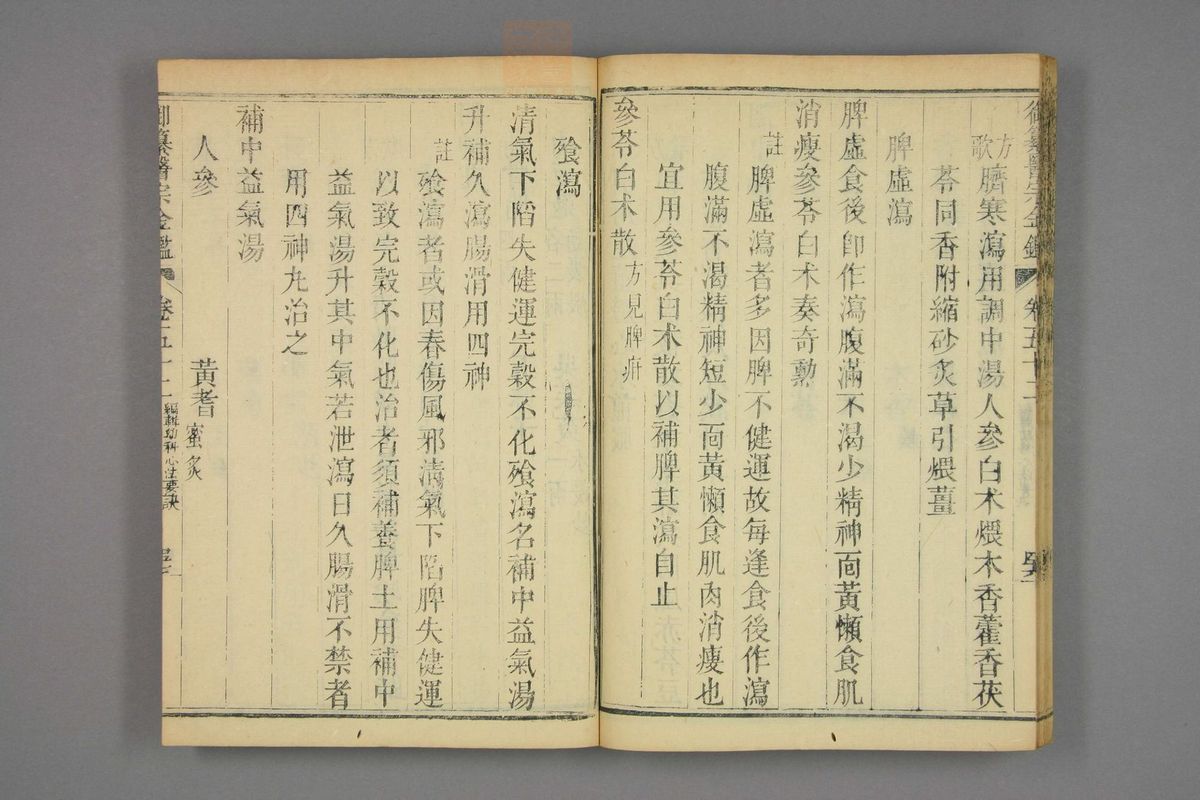 御纂醫宗金鑑 卷五十二
方歌 臍寒瀉用調中湯人參白术煨木香藿香茯
苓同香附縮砂炙草引煨薑
脾虛瀉
脾虛食後卽作瀉腹滿不渴少精神面黃懶食肌
消瘦參苓白术奏奇勳
註 脾虛瀉者多因脾不健運故每逢食後作瀉
腹滿不渴精神短少面黃懶食肌肉消瘦也
宜用參苓白术散以補脾其瀉自止
參苓白术散 方見脾疳
飱瀉
清氣下陷失健運完穀不化飱瀉名補中益氣湯
升補久瀉腸滑用四神
註 飱瀉者或因春傷風邪清氣下陷脾失健運
以致完穀不化也治者須補養脾土用補中
益氣湯升其中氣若泄瀉日久腸滑不禁者
用四神丸治之
補中益氣湯
人參 黃耆 蜜炙
御纂醫宗金鑑 卷五十二 編輯幼科心法要訣